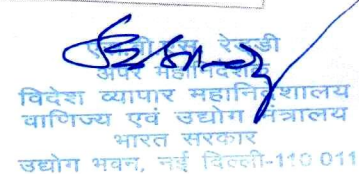 रेड्डी
अपर महानिदेशक
विदेश व्यापार महानिदेशालय
वाणिज्य एवं उद्योग मंत्रालय
भारत सरकार
उद्योग भवन, नई दिल्ली-110 011